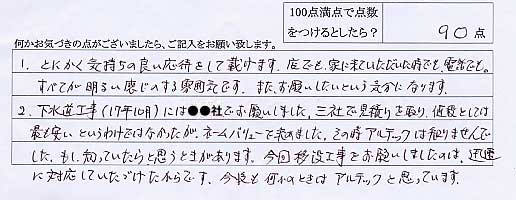 100点満点で点数
をつけるとしたら？
90点
何かお気づきの点がございましたら、ご記入をお願い致します。
1. とにかく気持ちの良い応待をして戴けます。店でも、家に来ていただいた時でも、電話でも。
すべてが明るい感じのする雰囲気です。また、お願いしたいという気分になります。
2. 下水道工事（17年10月）には●●社でお願いしました。三社で見積りを取り、値段としては
最も安いというわけではなかったが、ネームバリューで決めました。その時アルテックは知りませんで
した。もし、知っていたらと思うときがあります。今回移設工事をお願いしましたのは、迅速
に対応していただけたからです。今後も何かのときはアルテックと思っています。